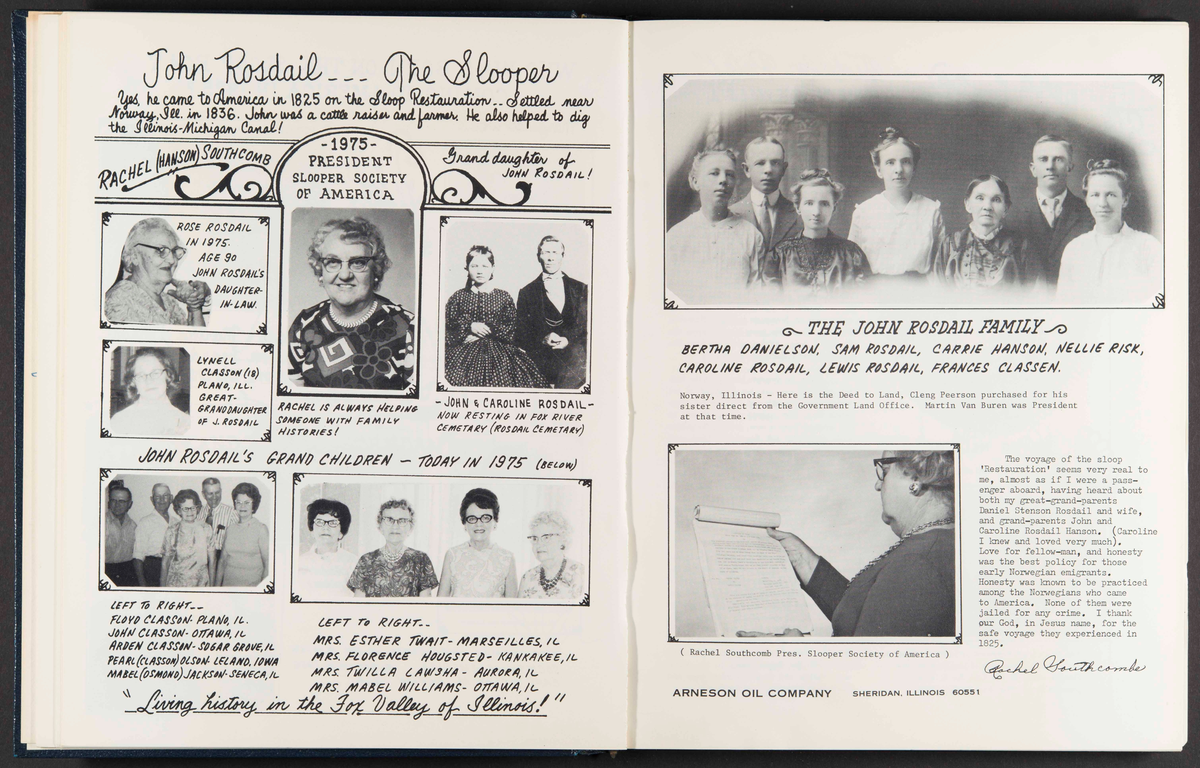 John Rosdail --- The Slooper
Yes, he came to America in 1825 on the Sloop Restauration -- Settled near
Norway, Ill. in 1836. John was a cattle raiser and farmer. He also helped to dig
the Illinois-Michigan Canal!
RACHEL (HANSON) SOUTHCOMB
-1975-
PRESIDENT
SLOOPER SOCIETY
OF AMERICA
Grand daughter of
JOHN ROSDAIL!
ROSE ROSDAIL
IN 1975.
AGE 90
JOHN ROSDAIL'S
DAUGHTER-
IN-LAW.
LYNELL
CLASSON (18)
PLANO, ILL.
GREAT-
GRANDDAUGHTER
OF J. ROSDAIL
RACHEL IS ALWAYS HELPING
SOMEONE WITH FAMILY
HISTORIES!
- JOHN & CAROLINE ROSDAIL -
NOW RESTING IN FOX RIVER
CEMETARY (ROSDAIL CEMETARY)
JOHN ROSDAIL'S GRAND CHILDREN - TODAY IN 1975 (BELOW)
LEFT TO RIGHT --
FLOYD CLASSON- PLANO, IL.
JOHN CLASSON- OTTAWA, IL
ARDEN CLASSON- SUGAR GROVE, IL
PEARL (CLASSON) OLSON- LELAND, IOWA
MABEL (OSMOND) JACKSON- SENECA, IL
LEFT TO RIGHT --
MRS. ESTHER TWAIT- MARSEILLES, IL
MRS. FLORENCE HOUGSTED- KANKAKEE, IL
MRS. TWILLA LAWSHA- AURORA, IL
MRS. MABEL WILLIAMS- OTTAWA, IL
"Living history in the Fox Valley of Illinois!"
THE JOHN ROSDAIL FAMILY
BERTHA DANIELSON, SAM ROSDAIL, CARRIE HANSON, NELLIE RISK,
CAROLINE ROSDAIL, LEWIS ROSDAIL, FRANCES CLASSEN.
Norway, Illinois - Here is the Deed to Land, Cleng Peerson purchased for his
sister direct from the Government Land Office. Martin Van Buren was President
at that time.
The voyage of the sloop
'Restauration' seems very real to
me, almost as if I were a pass-
enger aboard, having heard about
both my great-grand-parents
Daniel Stenson Rosdail and wife,
and grand-parents John and
Caroline Rosdail Hanson. (Caroline
I knew and loved very much).
Love for fellow-man, and honesty
was the best policy for those
early Norwegian emigrants.
Honesty was known to be practiced
among the Norwegians who came
to America. None of them were
jailed for any crime. I thank
our God, in Jesus name, for the
safe voyage they experienced in
1825.
Rachel Southcombe
( Rachel Southcomb Pres. Slooper Society of America )
ARNESON OIL COMPANY SHERIDAN, ILLINOIS 60551